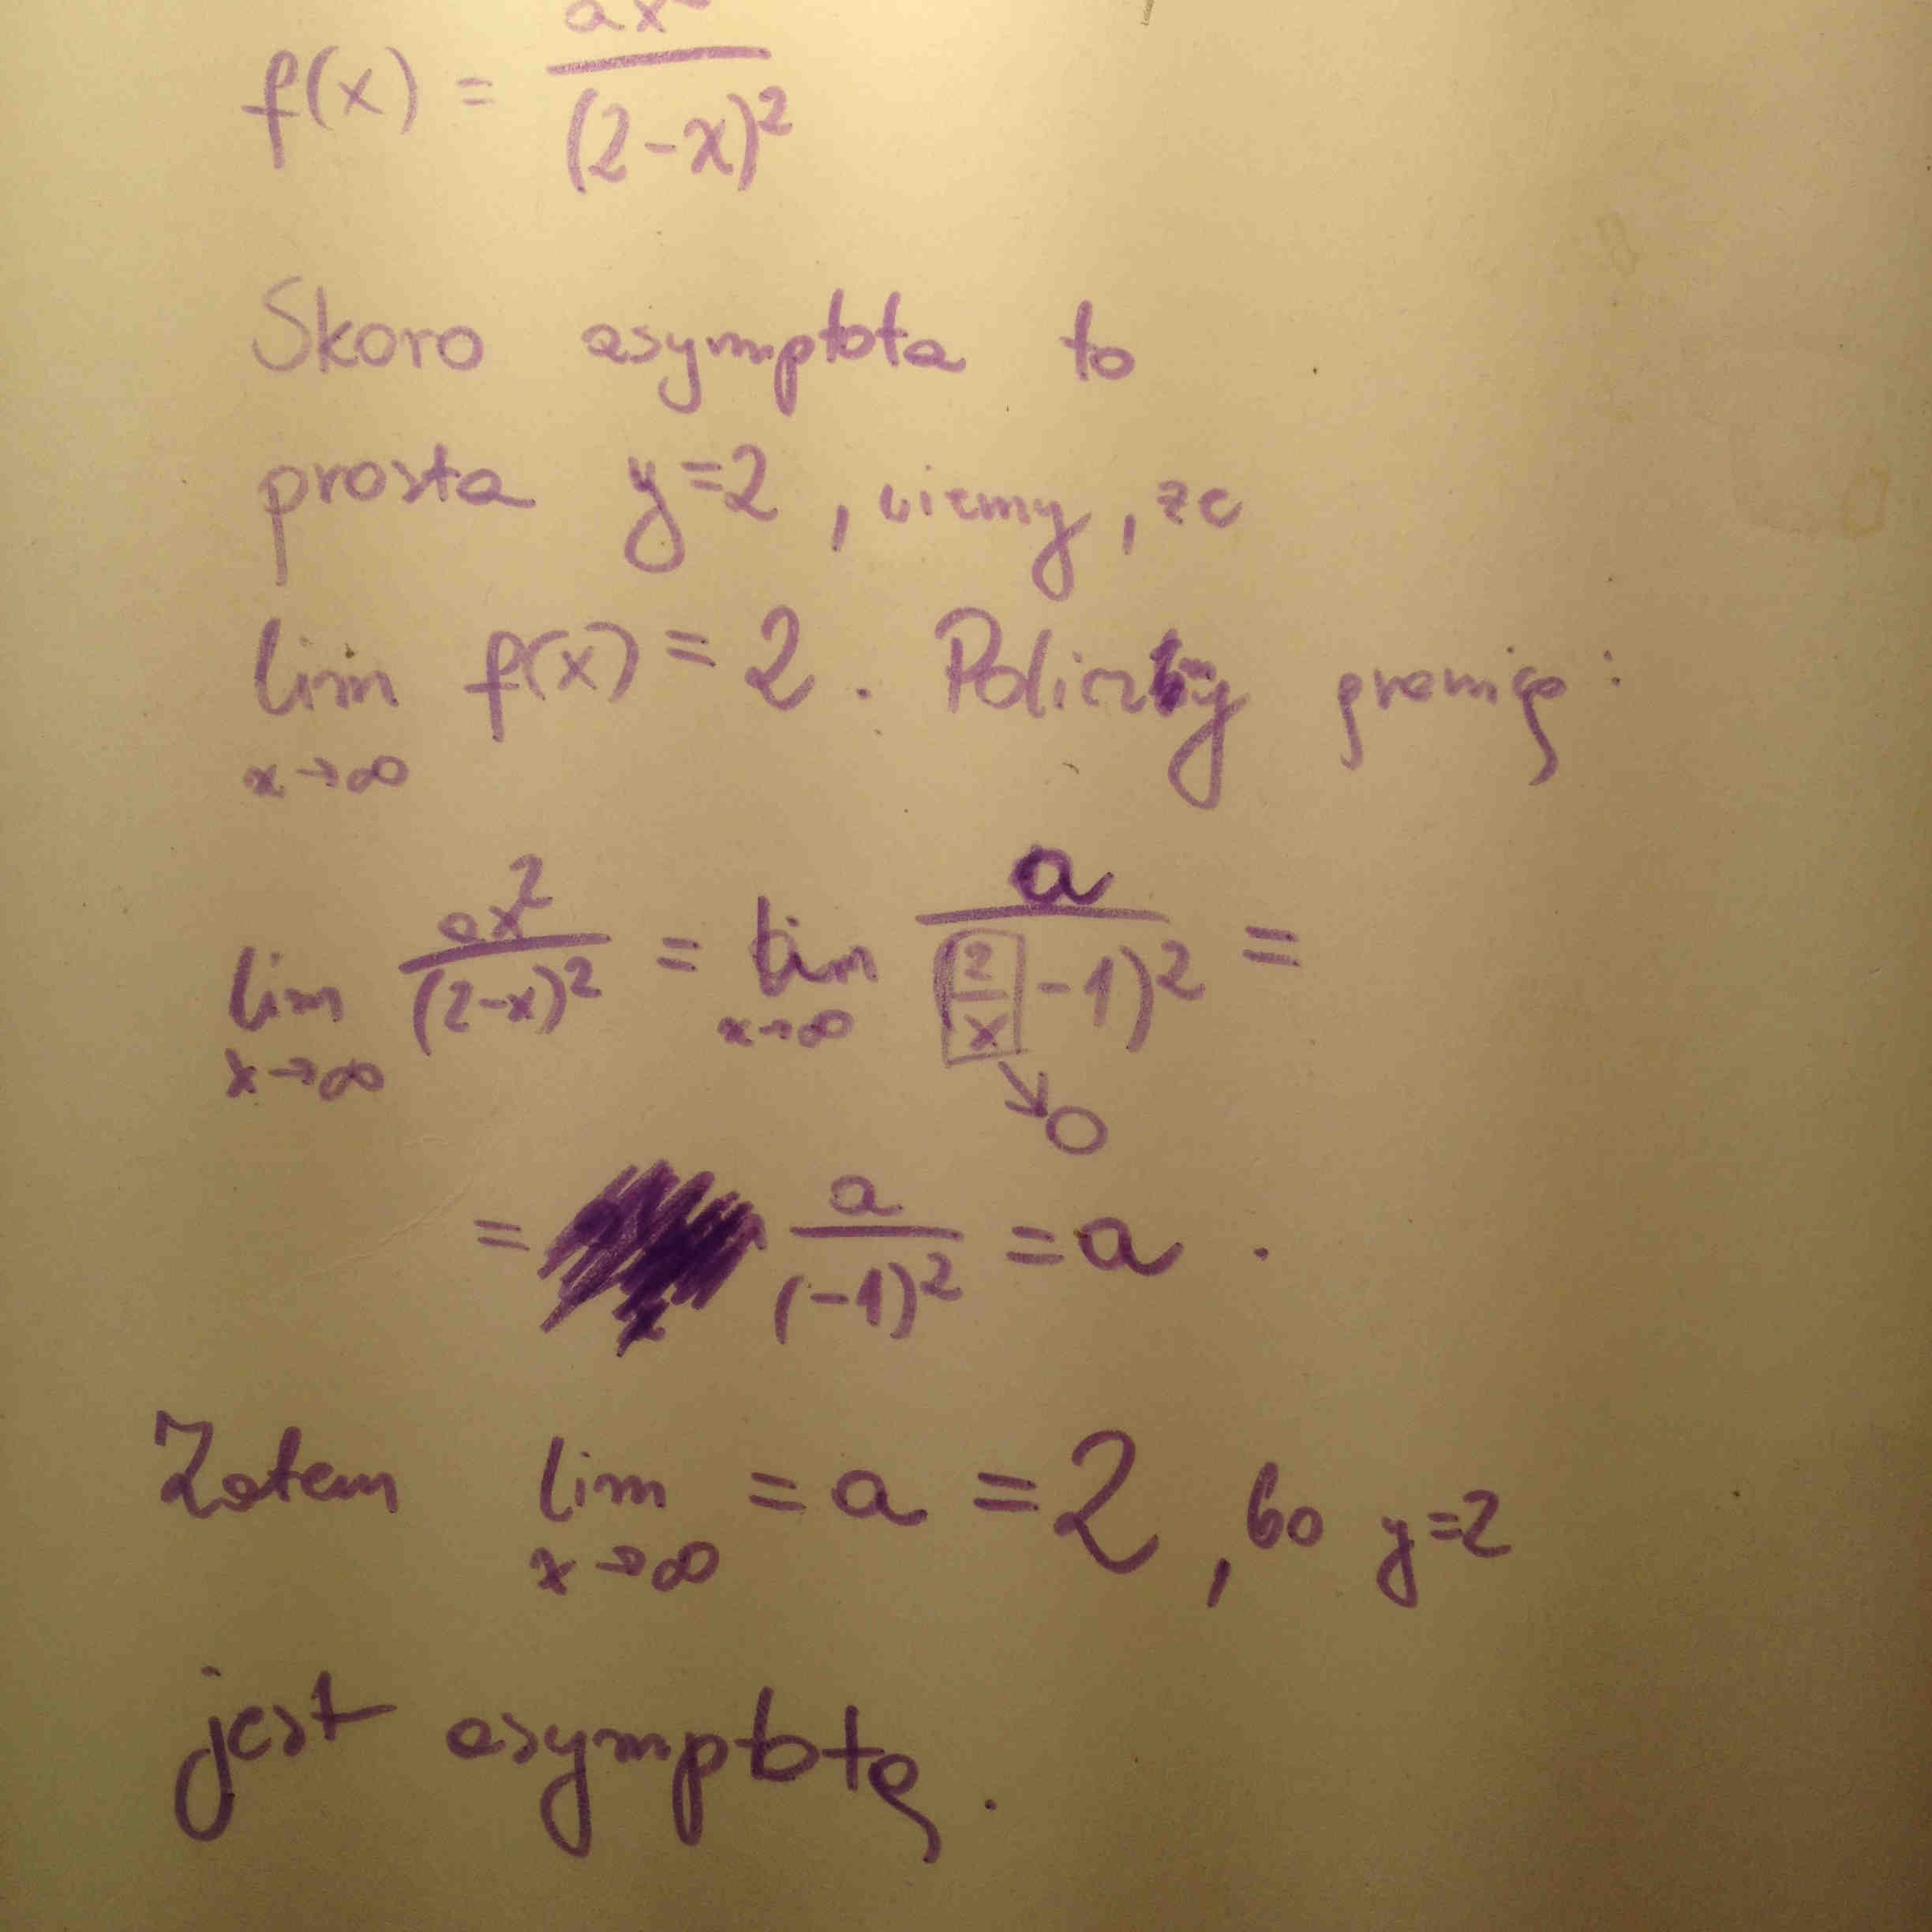 f(x) = ax² / (2-x)²
Skoro asymptota to
prosta y=2 , wiemy, że
lim x→∞ f(x) = 2 . Policzmy granicę :
lim x→∞ ax² / (2-x)² = lim x→∞ a / (2/x - 1)² =
→ 0
= a / (-1)² = a .
Zatem lim x→∞ = a = 2 , bo y=2
jest asymptotą .